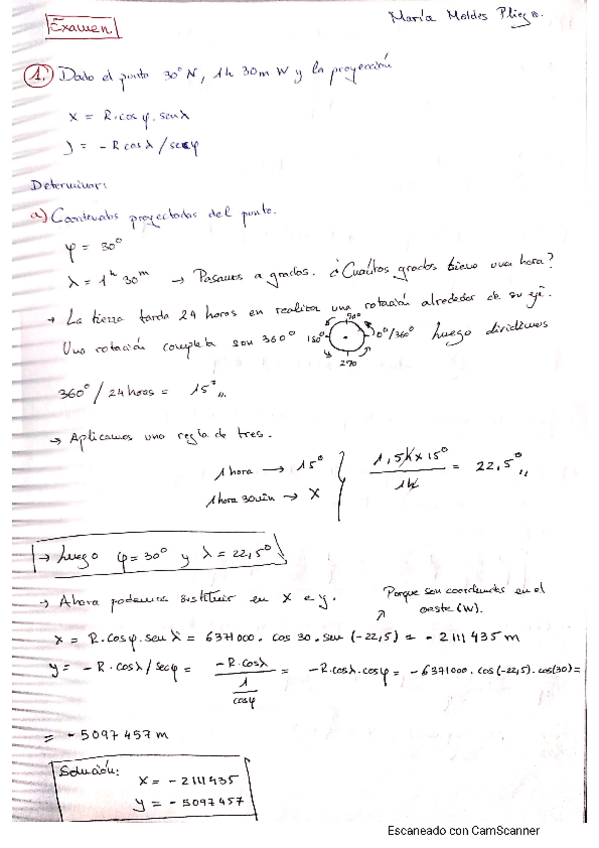 María Moldes Pliego.
Examen
1. Dado el punto 30º N, 1h 30m W y la proyección
x = R·cos φ · senλ
y = - R cosλ / secφ
Determinar:
a) Coordenadas proyectadas del punto.
φ = 30º
λ = 1h 30m → Pasamos a grados. ¿Cuántos grados tiene una hora?
→ La tierra tarda 24 horas en realizar una rotación alrededor de su eje.
Una rotación completa son 360º
90º
180º
0º/360º
270
luego dividimos
360º / 24 horas = 15º,,
→ Aplicamos una regla de tres.
1 hora → 15º
1 hora 30min → X
1,5h x 15º / 1h = 22,5º,,
→ Luego φ = 30º y λ = 22,5º
→ Ahora podemos sustituir en x e y.
Porque son coordenadas en el
oeste (W).
x = R·cosφ·sen λ = 6371000 · cos 30 · sen (-22,5) = - 2111435 m
y = - R·cosλ / secφ = -R·cosλ / 1/cosφ = -R·cosλ·cosφ = -6371000·cos(-22,5)·cos(30) =
= - 5097457 m
Solución:
x = - 2111435
y = - 5097457
Escaneado con CamScanner